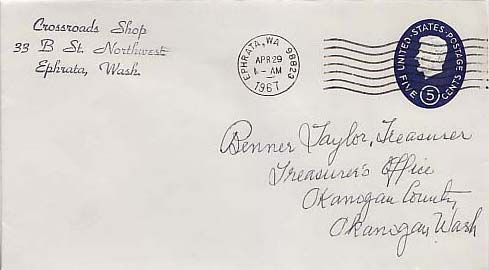 Crossroads Shop
33 B St. Northwest
Ephrata, Wash.
EPHRATA, WA 98823
APR 29
AM
1967
UNITED STATES POSTAGE
FIVE 5 CENTS
Benner Taylor, Treasurer
Treasurer's Office
Okanogan County,
Okanogan Wash